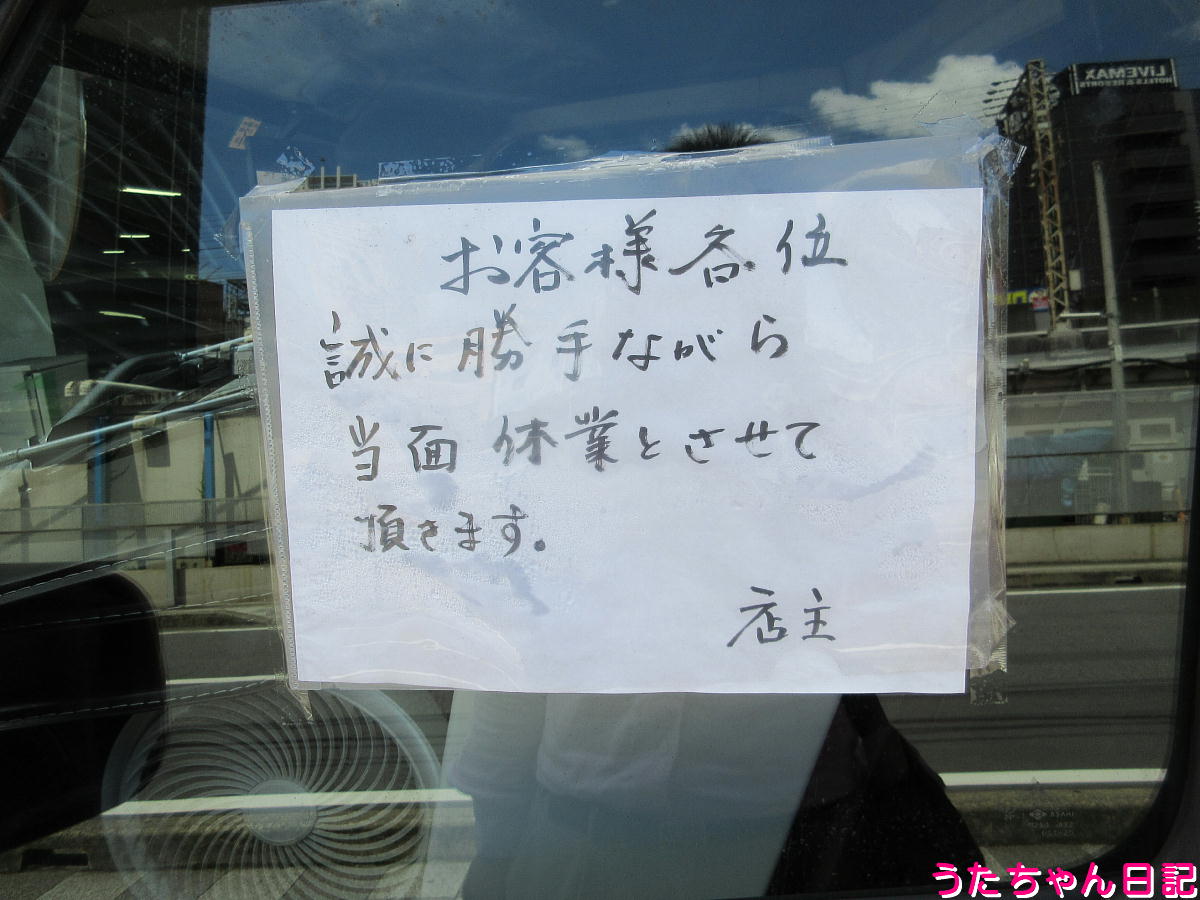 お客様各位
誠に勝手ながら
当面休業とさせて
頂きます。
店主
LiVEMAX
HOTELS & RESORTS
うたちゃん日記